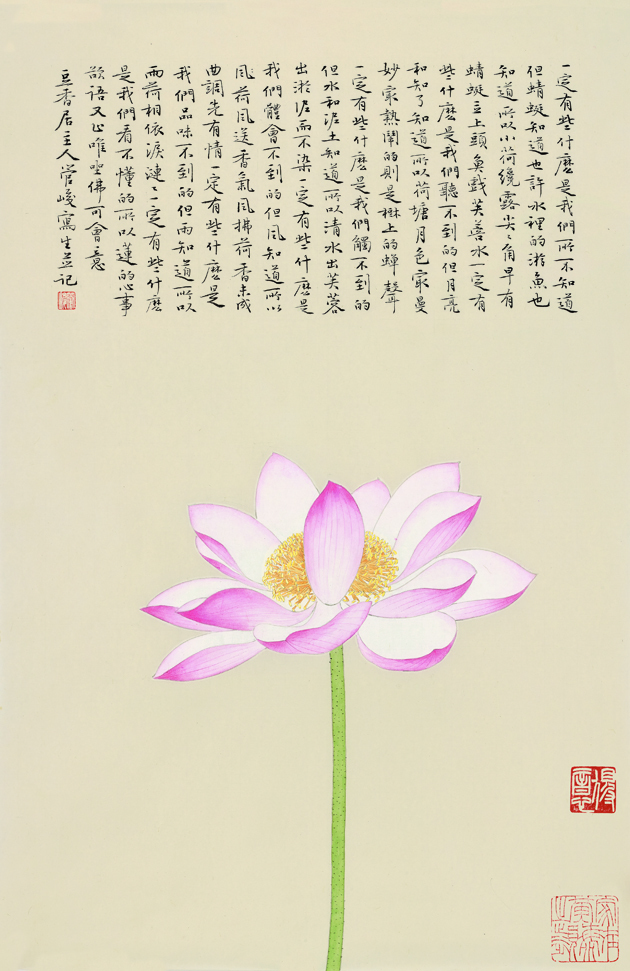 一定有些什麼是我們所不知道
但蜻蜓知道也許水裡的游魚也
知道所以小荷纔露尖尖角早有
蜻蜓立上頭魚戲芙蓉水一定有
些什麼是我們聽不到的但月亮
和知了知道所以荷塘月色最曼
妙最熱鬧的則是樹上的蟬聲
一定有些什麼是我們觸不到的
但水和泥土知道所以清水出芙蓉
出淤泥而不染一定有些什麼是
我們體會不到的但風知道所以
風荷風送香氣風拂荷香未成
曲調先有情一定有些什麼是
我們品味不到的但雨知道所以
雨荷相依淚漣漣一定有些什麼
是我們看不懂的所以蓮的心事
欲語又止唯坐佛可會意
豆香居主人管峻寫生並記